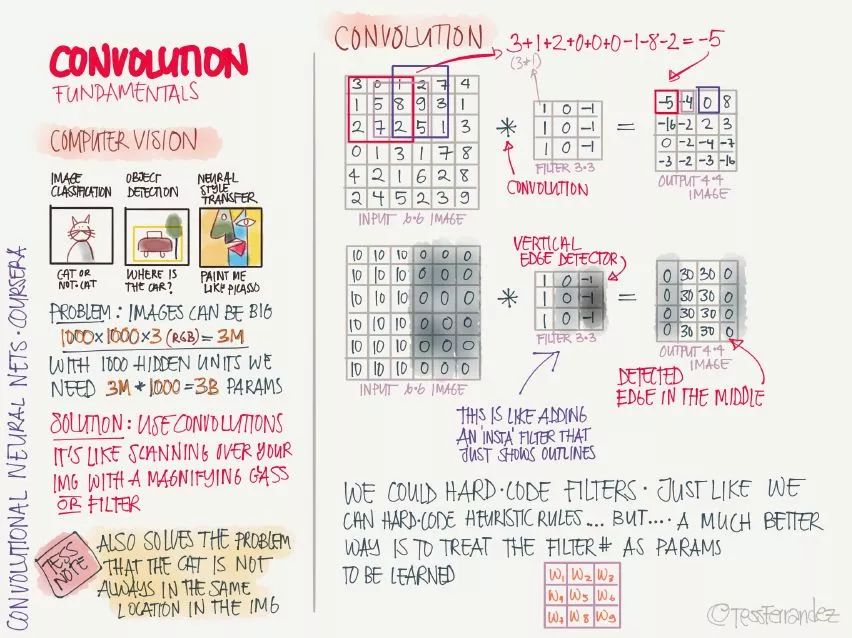 CONVOLUTION
FUNDAMENTALS
COMPUTER VISION
IMAGE
CLASSIFICATION
CAT OR
NOT-CAT
OBJECT
DETECTION
WHERE IS
THE CAR?
NEURAL
STYLE
TRANSFER
PAINT ME
LIKE PICASSO
PROBLEM: IMAGES CAN BE BIG
1000×1000×3 (RGB) = 3M
WITH 1000 HIDDEN UNITS WE
NEED 3M * 1000 = 3B PARAMS
SOLUTION: USE CONVOLUTIONS
IT'S LIKE SCANNING OVER YOUR
IMG WITH A MAGNIFYING GASS
OR FILTER
TESS NOTE
ALSO SOLVES THE PROBLEM
THAT THE CAT IS NOT
ALWAYS IN THE SAME
LOCATION IN THE IMG
CONVOLUTIONAL NEURAL NETS · COURSERA
CONVOLUTION
3+1+2+0+0+0-1-8-2=-5
(3*1)
3 0 1 2 7 4
1 5 8 9 3 1
2 7 2 5 1 3
0 1 3 1 7 8
4 2 1 6 2 8
2 4 5 2 3 9
INPUT 6·6 IMAGE
*
CONVOLUTION
1 0 -1
1 0 -1
1 0 -1
FILTER 3·3
=
-5 -4 0 8
-16 -2 2 3
0 -2 -4 -7
-3 -2 -3 -16
OUTPUT 4·4
IMAGE
10 10 10 0 0 0
10 10 10 0 0 0
10 10 10 0 0 0
10 10 10 0 0 0
10 10 10 0 0 0
10 10 10 0 0 0
INPUT 6·6 IMAGE
*
VERTICAL
EDGE DETECTOR
1 0 -1
1 0 -1
1 0 -1
FILTER 3·3
=
0 30 30 0
0 30 30 0
0 30 30 0
0 30 30 0
OUTPUT 4·4
IMAGE
THIS IS LIKE ADDING
AN 'INSTA' FILTER THAT
JUST SHOWS OUTLINES
DETECTED
EDGE IN THE MIDDLE
WE COULD HARD-CODE FILTERS · JUST LIKE WE
CAN HARD-CODE HEURISTIC RULES... BUT.... A MUCH BETTER
WAY IS TO TREAT THE FILTER # AS PARAMS
TO BE LEARNED
W1 W2 W3
W4 W5 W6
W7 W8 W9
©TessFerrandez